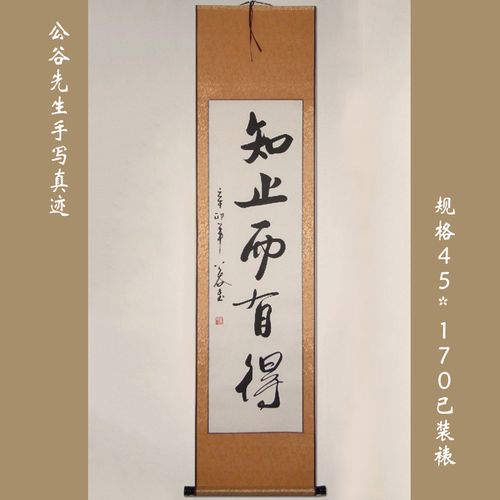 公谷先生手写真迹
知止而有得
辛卯年
公谷书
规格45*170已装裱